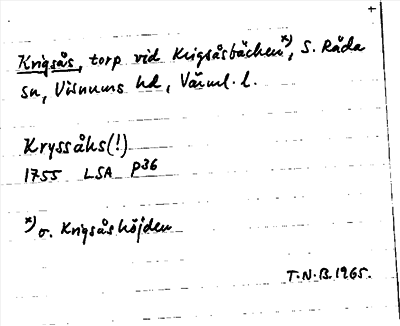 Krigsås, torp vid Krigsåsbäcken x), S. Råda
sn, Visnums hd, Värml. l.
Kryssåhs(!)
1755 LSA P36
x) o. Krigsåshöjden
T.N.B. 1965.